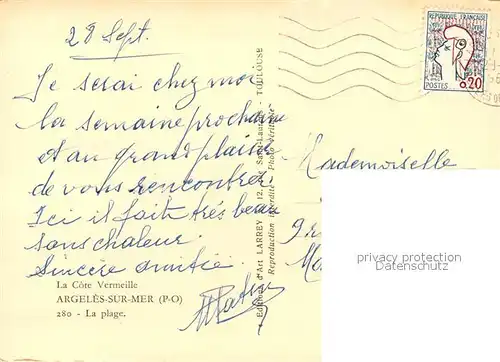 28 Sept.
Je serai chez moi
la semaine prochaine
et au grand plaisir
de vous rencontrer.
Ici il fait très beau
sans chaleur.
Sincère amitié.
La Côte Vermeille
ARGELÈS-SUR-MER (P-O)
280 - La plage.
Editions d'Art LARREY 12, TOULOUSE
Reproduction interdite - Photo véritable
REPUBLIQUE FRANÇAISE
POSTES 0,20
Mademoiselle
privacy protection
Datenschutz